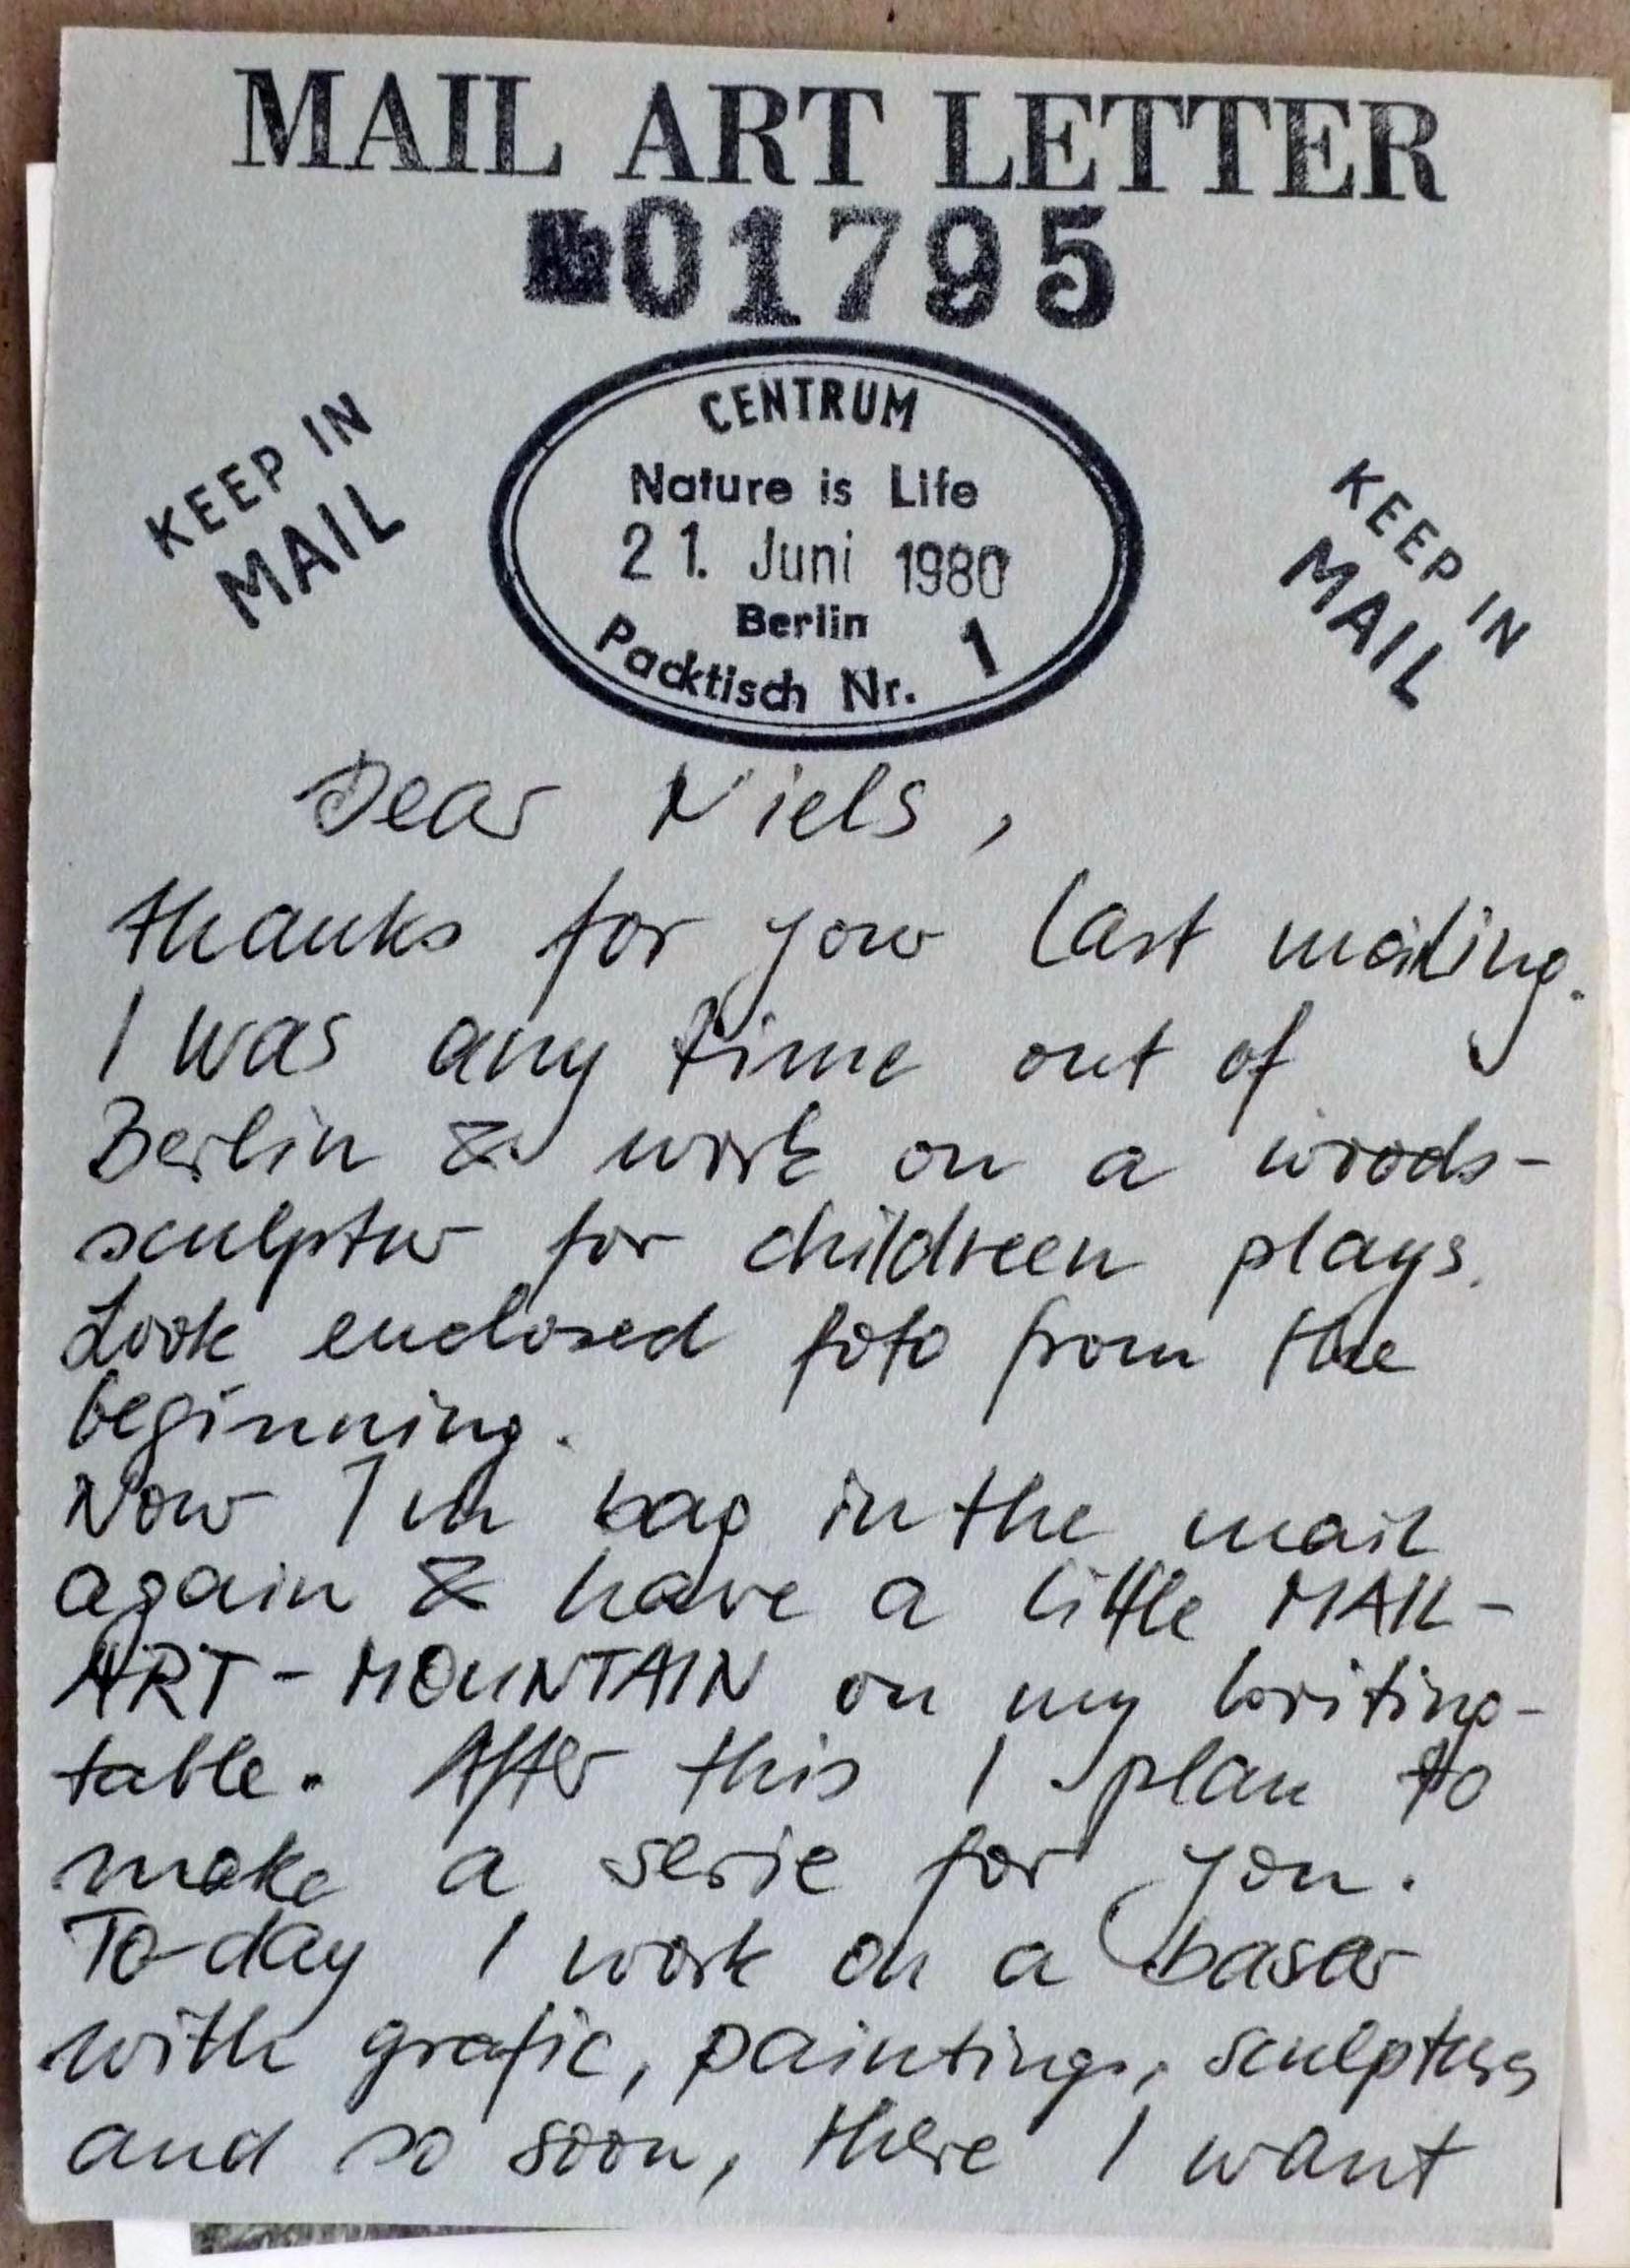 MAIL ART LETTER
№01795
CENTRUM
Nature is Life
21. Juni 1980
Berlin
Packtisch Nr. 1
KEEP IN
MAIL
KEEP IN
MAIL
Dear Niels,
thanks for your last mailing.
I was any time out of
Berlin & work on a woods-
sculptur for childreen plays.
Look enclosed foto from the
beginning.
Now I'm bag in the mail
again & have a little MAIL-
ART-MOUNTAIN on my writing-
table. After this I plan to
make a serie for you.
To-day I work on a basar
with grafic, paintings, sculpturs
and so soon, there I want